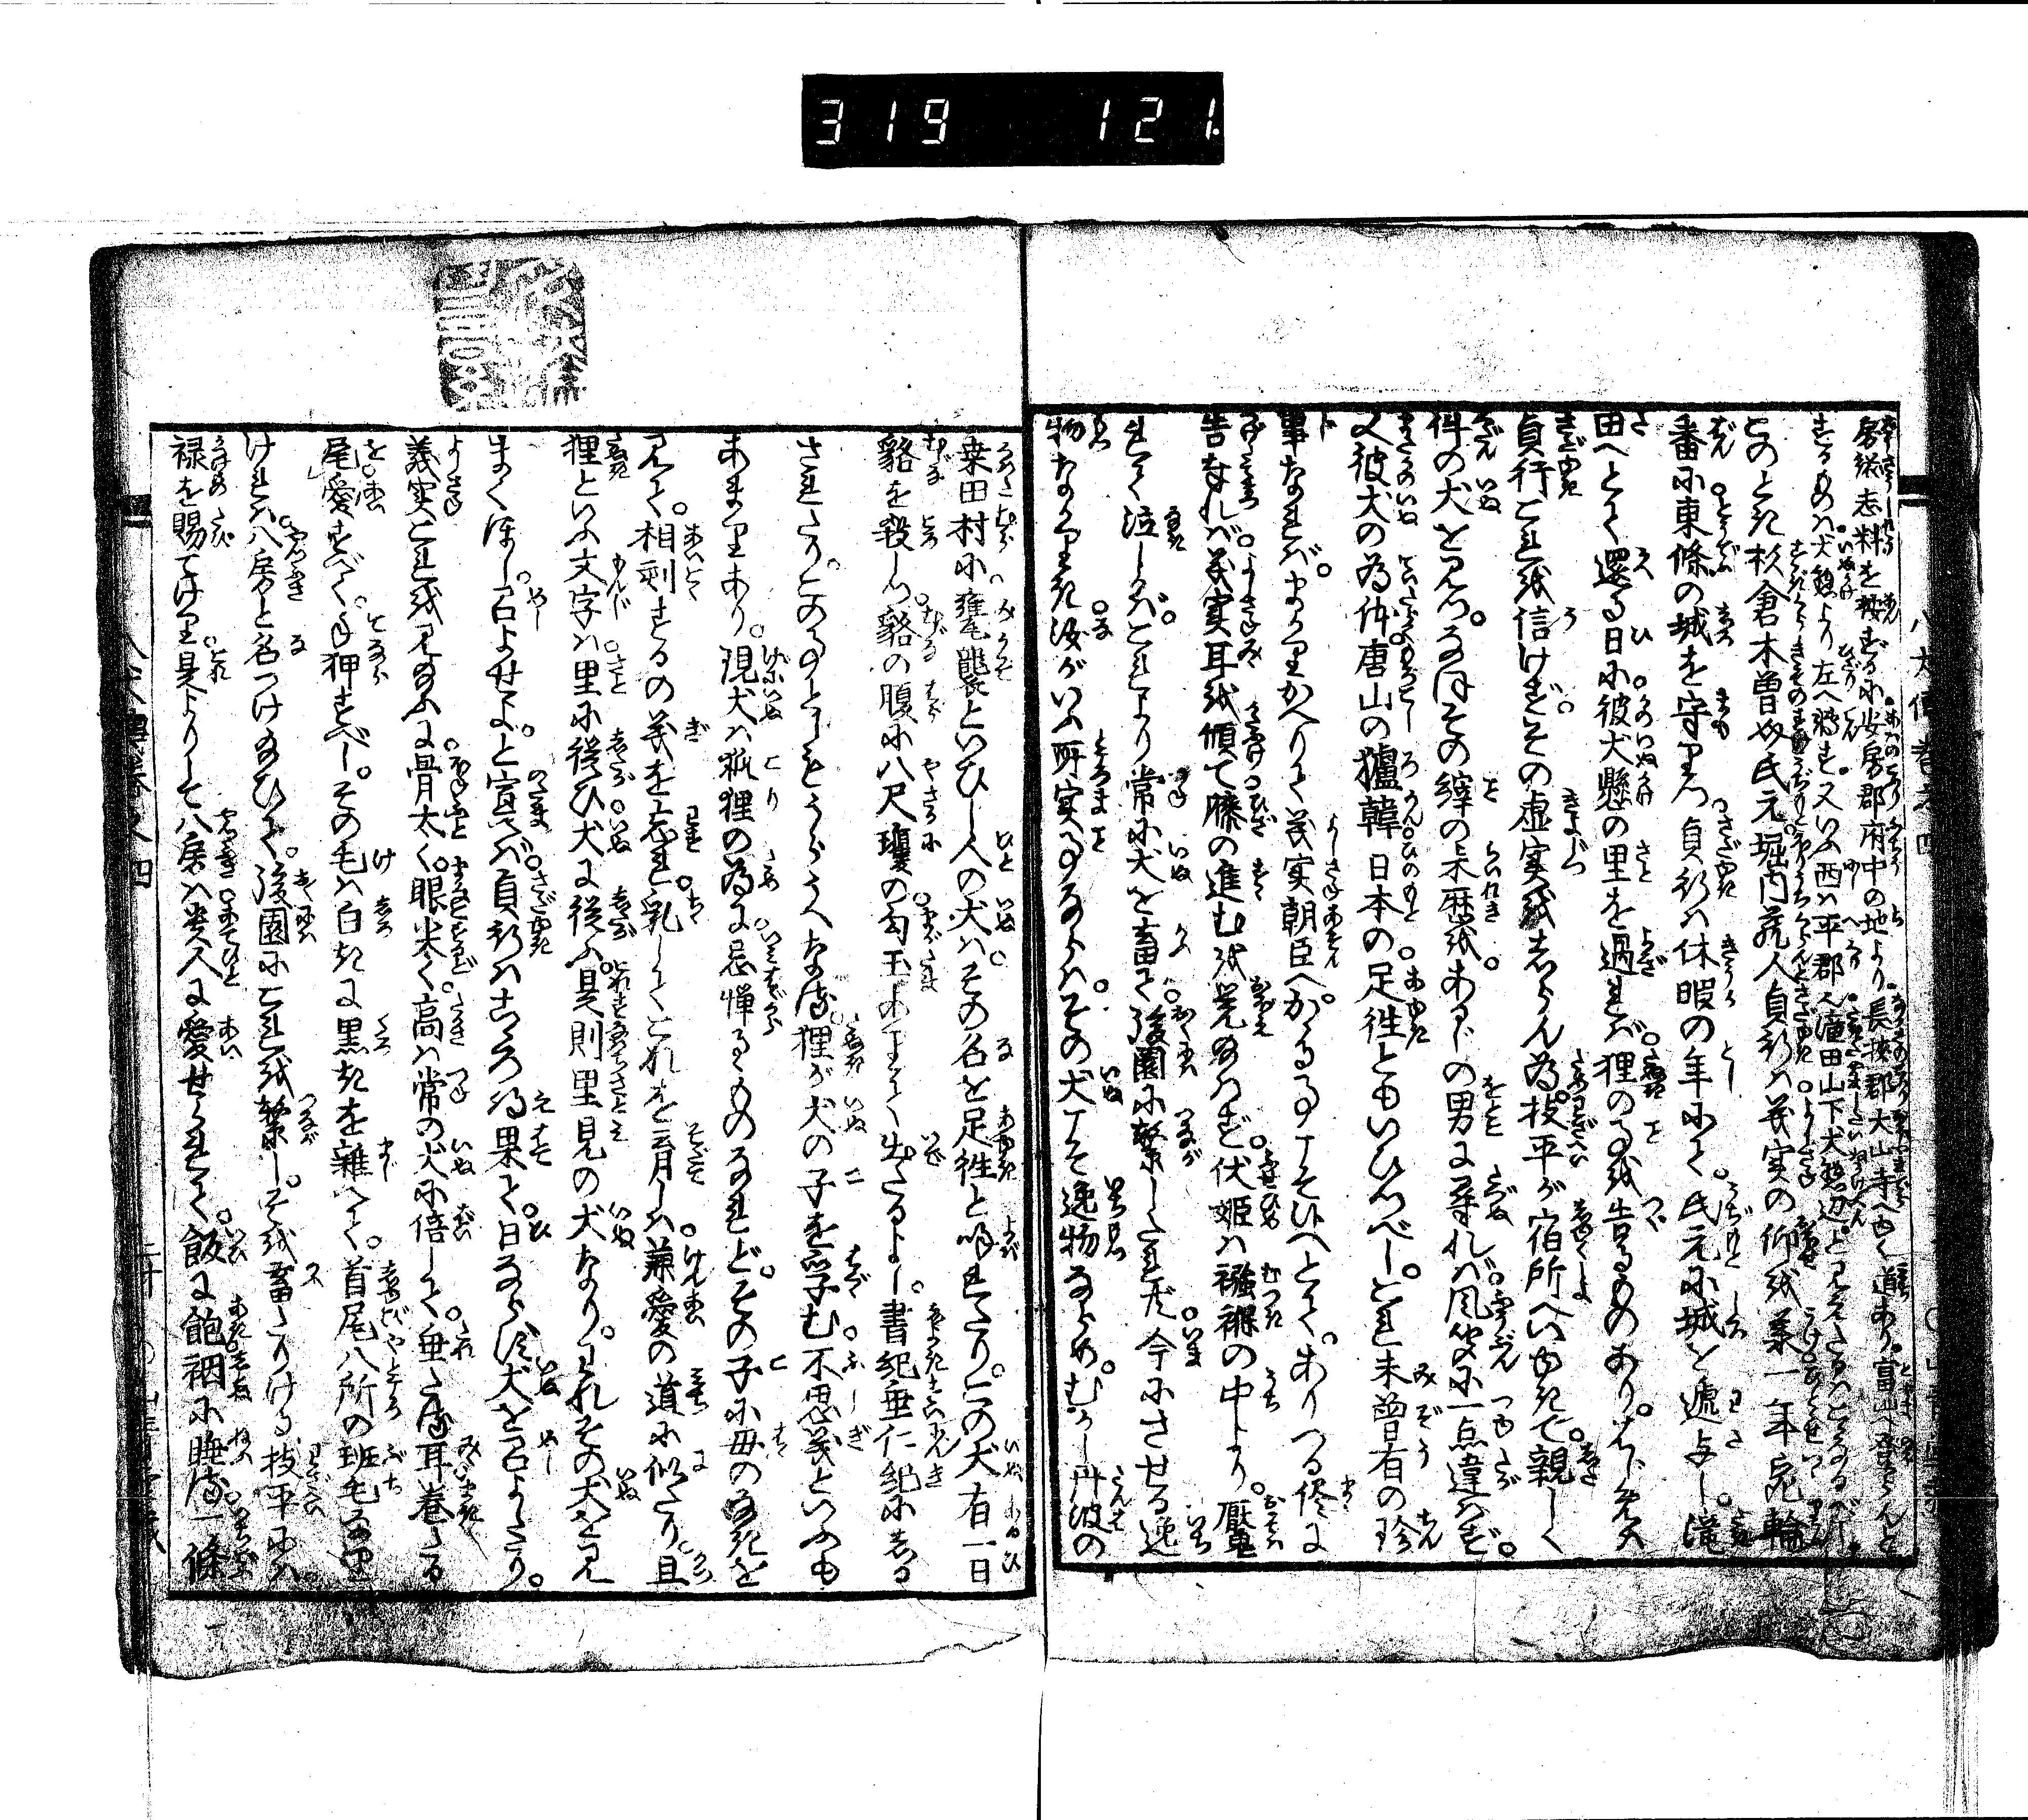 319 121.
房総志料を按ずるに安房郡府中の地より。長挾郡大山寺へゆく道あり。富山へ登らんと
するものは犬懸より左へ転ず。又いふ西は平郡滝田山下犬懸辺とみえたるはこゝなるべし
このとき杉倉木曽介氏元。堀内蔵人貞行は義実の仰を稟一年宛輪
番に東條の城を守りつ。貞行は休暇の年にて。氏元に城を逓与し。滝
田へとて還る日に。彼犬懸の里を過れば。狸の事を告るものあり。
貞行これを信けず。その虚実をしらん為。技平が宿所へいゆきて。親しく
件の犬を見つ。なほその縡の来歴を。あるじの男に尋れば。風聞に一点違はず。
又彼犬の為体。唐山の獹韓。日本の足往ともいひつべし。これ未曽有の珍
事なれば。まうりかへりて義実朝臣へ。かゝる事こそ候へとて。ありつる侭に
義実耳を傾て膝の進むを覚給はず。伏姫は襁褓の中より。魘
れて泣しかば。これより常に犬を畜て。後園に繋したれど。今にさせる逸
物なかりき。汝がいふ所実事ならば。その犬こそ逸物ならめ。むかし丹波の
八犬伝巻之四
桑田村に。甕襲といひし人の犬は。その名を足往と呼れたり。この犬有一日
貉を殺しつ。貉の腹に八尺瓊の勾玉ありて出たるよし。書紀垂仁紀にしる
されたり。この事としもうらうへなる。狸が犬の子を孚む。不思議といふも
あまりあり。現犬は狐狸の為に。忌憚るものなれど。その子に母のなきを
見て。相剋するの義を忘れ。乳してこれを字しは。兼愛の道に似たり。且
狸といふ文字は。里に従ひ犬に従ふ。是則里見の犬なり。われその犬を見
まくほし。召よせよ。と宣へば。貞行はこゝろ得果て。日ならず犬を召よせたり。
義実これを見給ふに。骨太く。眼尖く。高は常の犬に倍して。垂たる耳巻たる
尾。愛すべく。手狎すべし。その毛は白きに黒きを雑て。首尾八所の斑毛なり
ければ。八房と名つけ給ひて。後園にこれを繋してぞ畜たりける。技平には
禄を賜てけり。是よりして八房は。貴人に愛せられて。飯に飽。裀に睡る。一條